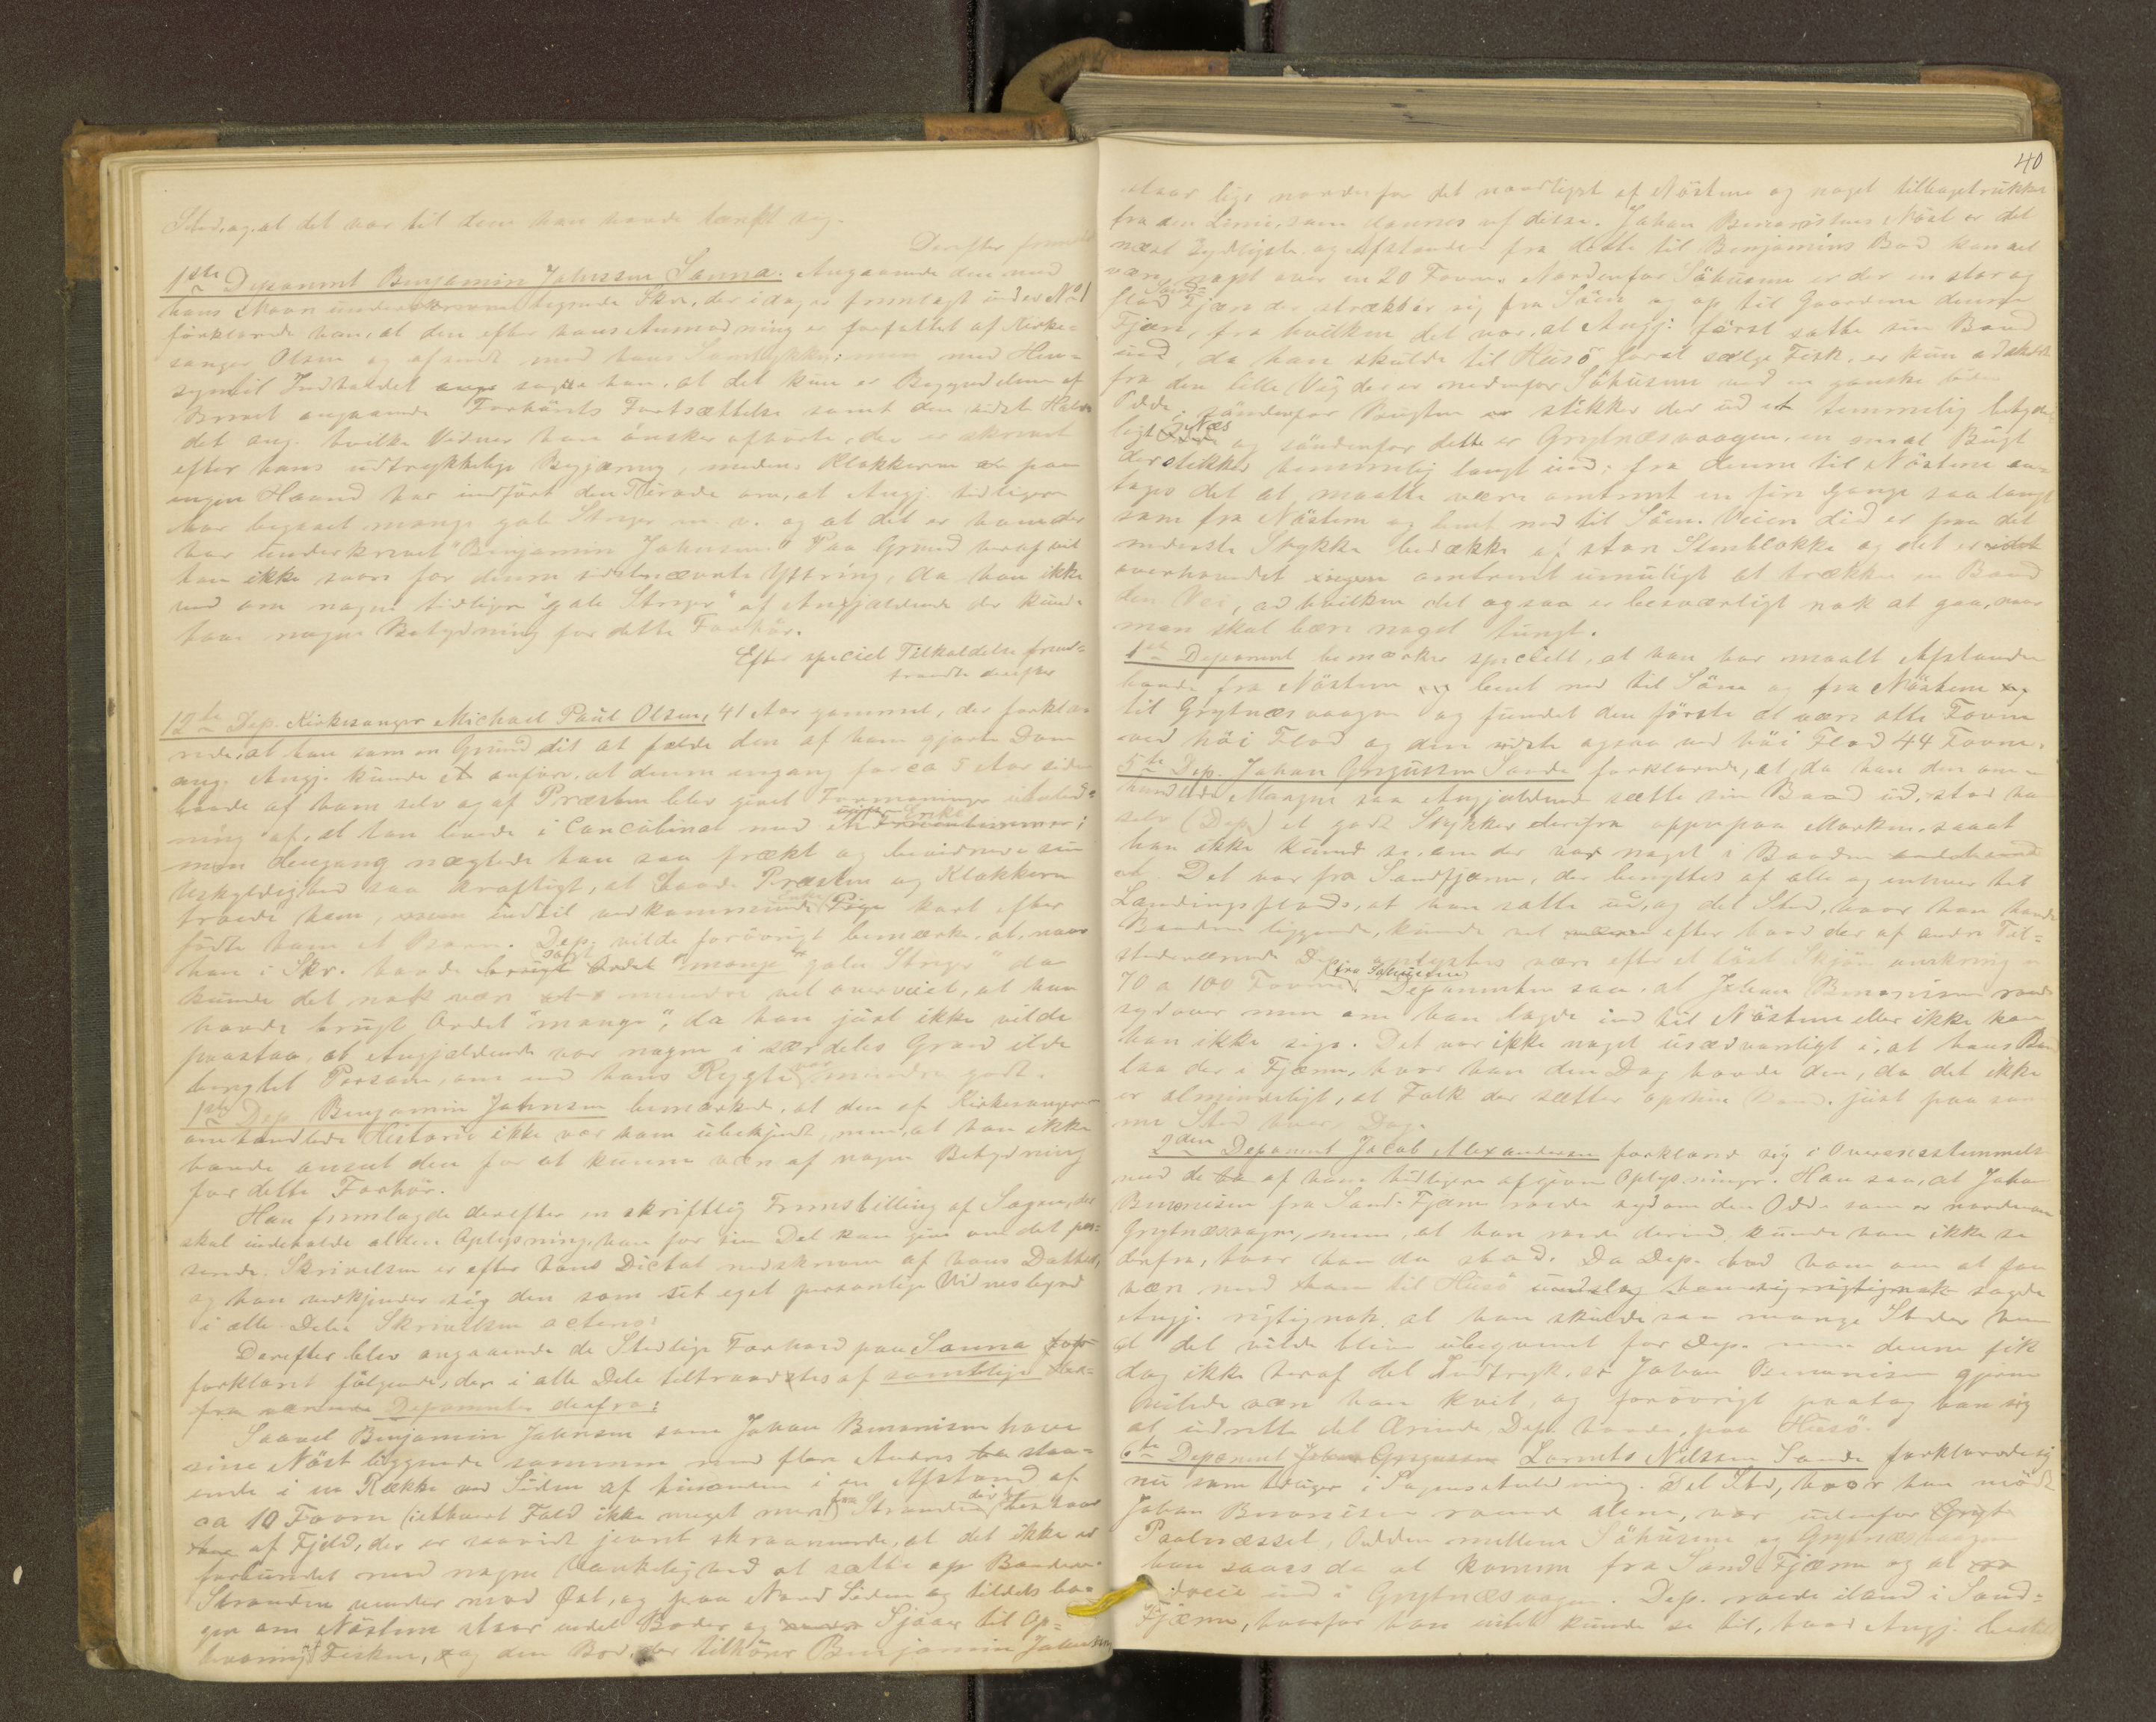 Sted, og at det var til dem han havde tænkt sig.
Derefter fremstod
1ste Deponent Benjamin Johnsen Sanna. Angaaende den med
hans Navn underskrevne Skr., der idag er fremlagt under No 1
forklarede han, at den efter hans Anmodning er forfattet af Kirke-
sanger Olsen og afsendt med hans Samtykke; men med Hen-
syn til Indholdet sagde han, at det kun er Begyndelsen af
Brevet angaaende Forhörets Fortsættelse samt den sidste Halvdel
det ang. hvilke Vidner han önsker afhörte, der er skrevet
efter hans udtrykkelige Begjæring, medens Klokkeren paa
engen Haand har indfört den Tirade om, at Angj. tidligere
har begaaet mange gale Streger m. v. og at det er ham der
har underskrevet "Benjamin Johnsen" Paa Grund heraf vil
han ikke svare for denne sidstnævnte Yttring, da han ikke
ved om nogen tidligere "gale Streger" af Angjældende der kunde
have nogen Betydning for dette Forhör.
Efter speciel Tilkaldelse frem-
traadte derefter
12te Dep. Kirkesanger Michael Paul Olsen, 41 Aar gammel, der forkla-
rede, at han som en Grund dit at fælde den af ham gjorte Dom
ang. Angj. kunde anföre, at denne engang for ca 5 Aar siden
baade af ham selv og af Præsten blev givet Formaninger i Anled-
ning af, at han levede i Concubinat med en Enke
Fruentimmer;
men dengang nægtede han saa frækt og bevidnede sin
Uskyldighed saa kraftigt, at baade Præsten og Klokkeren
troede ham, indtil vedkommende Enke Pige kort efter
födte ham et Barn. Dep. vilde forövrigt bemærke, at, naar
han i Skr. havde brugt Ordet "mange gale Streger" da
kunde det nok være mindre vel overveiet, at han
havde brugt Ordet "mange", da han just ikke vilde
paastaa, at Angjældende var nogen i særdeles Grad ilde
berygtet Person, om end hans Rygte var mindre godt.
1ste Dep. Benjamin Johnsen bemærkede, at den af Kirkesangeren
omhandlede Historie ikke var ham ubekjendt, men, at han ikke
havde anseet den for at kunne være af nogen Betydning
for dette Forhör.
Han fremlagde derefter en skriftlig Fremstilling af Sagen, der
skal indeholde al den Oplysning, han for sin Del kan give om det pas-
serede. Skrivelsen er efter hans Dictat nedskreven af hans Datter,
og han vedkjender sig den som sit eget personlige Vidnesbyrd
i alle Dele Skrivelsen acteres:
Derefter blev angaaende de Stedlige Forhold paa Sanna
forklaret fölgende, der i alle Dele tiltraadtes af samtlige
Deponenter derfra:
Saavel Benjamin Johnsen som Johan Benonisen have
sine Nöst liggende sammen med flere Andres staa-
ende i en Række ved Siden af hinanden i en Afstand af
ca 10 Favne (iethvert Fald ikke meget mere) fra Stranden der bestaar
af Fjeld, der er saavidt jevnt skraanende, at det ikke er
forbundet med nogen Vanskelighed at sætte op Baadene.
Stranden vender mod Öst, og paa Nord Siden og tildels ba-
gen om Nöstene staar endel Boder og Sjaaer til Op-
bevaring af Fisken, og den Bod, der tilhörer Benjamin Johnsen
40
staar lige nordenfor det nordligste af Nöstene og noget tilbagetrukket
fra den Linie, som dannes af disse. Johan Benonisens Nöst er det
næst Sydligste og Afstanden fra dette til Benjamins Bod kan vel
være noget over en 20 Favne. Nordenfor Söhusene er der en stor og
flad Sand-Fjære der strækker sig fra Söen og op til Gaardene denne
Fjære, fra hvilken det var, at Angj. först satte sin Baad
ud, da han skulde til Husö forat sælge Fisk, er kun adskilt
fra den lille Vig der er nedenfor Söhusene ved en ganske liden
Odde. Söndenfor Bugten stikker der ud et temmelig betyde-
ligt Næs og söndenfor dette er Grytnæsvaagen, en smal Bugt
der stikker temmelig langt ind; fra denne til Nöstene an-
tages det at maatte være omtrent en fire Gange saa langt
som fra Nöstene og lent ned til Söen. Veien did er paa det
nederste Stykke bedækket af store Stenblokke og det er
overhovedet omtrent umuligt at trække en Baad
den Vei, ad hvilken det ogsaa er besværligt nok at gaa, naar
man skal bære noget tungt.
1ste Deponent bemærker specielt, at han har maalt Afstanden
baade fra Nöstene lent ned til Söen og fra Nöstene
til Grytnæsvaagen og fundet den förste at være otte Favne
ved höi Flod og den sidste ogsaa ved höi Flod 44 Favne.
5te Dep. Johan Gregussen Sande forklarede, at, da han den om-
handlede Morgen saa Angjældende sætte sin Baad ud, stod han
selv (Dep.) et godt Stykke derfra oppe paa Marken, saaat
han ikke kunde se, om der var noget i Baaden
Det var fra Sandfjæren, der benyttes af alle og enhver til
Landingsplads, at han satte ud, og det Sted, hvor han havde
Baaden liggende, kunde vel efter hvad der af andre Til-
stedeværende oplystes være efter et löst Skjön omkring
70 a 100 Favne fra Söhusene. Deponenten saa, at Johan Benonisen roede
sydover men om han lagde ind til Nöstene eller ikke kan
han ikke sige. Det var ikke noget usædvanligt i, at hans Baad
laa der i Fjæren, hvor han den Dag havde den, da det ikke
er almindeligt, at Folk der sætter op sine Baade just paa sam-
me Sted hver Dag.
2den Deponent Jacob Alexandersen forklared sig i Overensstemmelse
med de af ham tidligere afgivne Oplysninger. Han saa, at Johan
Benonisen fra Sand-Fjæren roede syd om den Odde som er nordenom
Grytnæsvaagen, men, at han roede derind kunde han ikke se
derfra, hvor han da stod. Da Dep. bad ham om at faa
være med ham til Husö undslog han sig rigtignok sagde
Angj. rigtignok, at han skulde saa mange Steder hen
at det vilde blive ubeqvemt for Dep. men denne fik
dog ikke heraf det Indtryk, at Johan Benonisen gjerne
vilde være ham kvit, og forövrigt paatog han sig
at udrette det Ærinde, Dep. havde, paa Husö.
6te Deponent Johan Gregussen Lorents Nilssen Sande forklarede sig
nu som tidliger i Sagens Anledning. Det Sted, hvor han mödte
Johan Benonisen roende alene, var udenfor Gryt
Paalnæsset, Odden mellem Söhusene og Grytnæsvaagen
han saaes da at komme fra Sand-Fjæren og at
dreie ind i Grytnæsvaagen. Dep. roede iland i Sand-
Fjæren, hvorfor han intet kunde se til, hvad Angj. bestilte